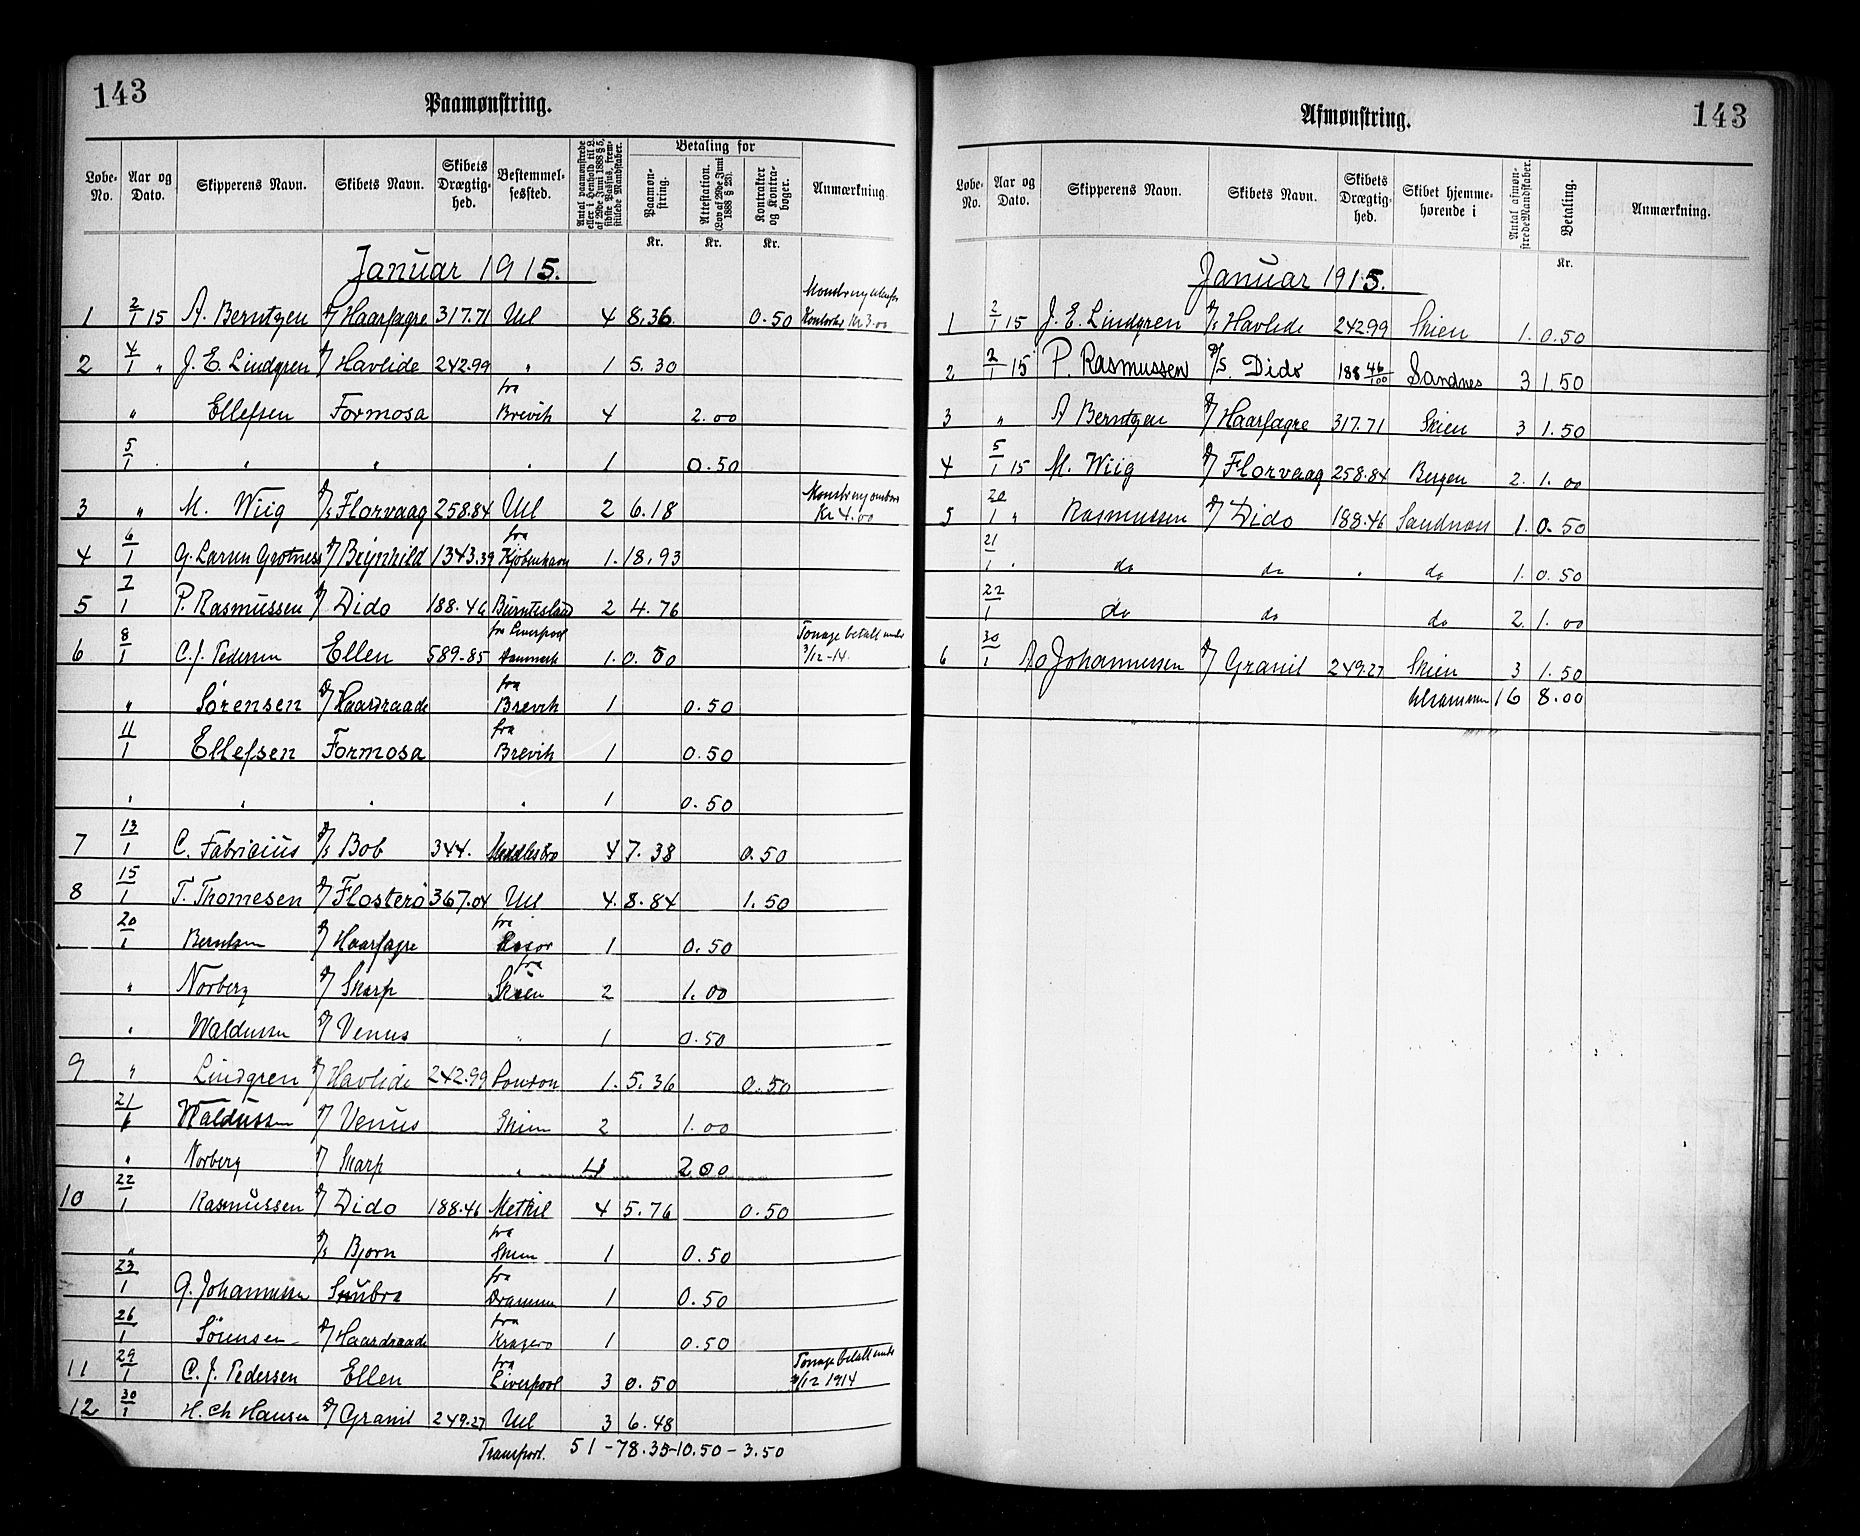 143
Paamønstring.
Løbe-No. | Aar og Dato. | Skipperens Navn. | Skibets Navn. | Skibets Drægtighed. | Bestemmelsessted. | Antal paamønstrede eller i Henhold til L. af 29de Juni 1888 § 5, sidste Passus, fremstillede Mandskaber. | Betaling for | Paamønstring. Kr. | Attestation. (Lov af 29de Juni 1888 § 25). Kr. | Kontrakter og Kontrabøger. Kr. | Anmærkning.
Januar 1915.
1 2/1 15 A. Berntzen D/S Haarfagre 317.71 Utl 4 8.36 0.50 Kontoret Kr 3.00
2 4/1 " J. E. Lindgren D/S Havlide 242.99 " 1 5.30
" Ellefsen Formosa fra Brevik 4 2.00
5/1 " " " 1 0.50
3 " M. Wiig D/S Florvaag 258.84 Utl 2 6.18 Kr 4.00
4 6/1 G. Larsen Grotness D/S Brynhild 1343.39 fra Kjøbenhavn 1. 18.93
5 7/1 P. Rasmussen D/S Dido 188.46 Burntisland 2 4.76
6 8/1 C. J. Pedersen Ellen 589-85 fra Liverpool Danmark 1. 0.50 Tonage betalt 3/12-14.
" Sørensen D/S Haardraade fra Brevik 1 0.50
11/1 Ellefsen Formosa fra Brevik 1 0.50
" " " " 1 0.50
7 13/1 C. Fabricius D/S Bob 344. Middlesbro 4 7.38 0.50
8 15/1 T. Thomesen D/S Flosterø 367.04 Utl 4. 8.84 1.50
20/1 Berntsen D/S Haarfagre fra 1 0.50
" Norberg D/S Skarp fra Skien 2 1.00
" Waldussen D/S Venus " 1 0.50
9 " Lindgren D/S Havlide 242.99 London 1. 5.36 0.50
21/1 Waldussen D/S Venus Skien 2 1.00
" Norberg D/S Skarp " 4 2.00
10 22/1 Rasmussen D/S Dido 188.46 Methil 4 5.76 0.50
" D/S Bjørn fra Skien 1 0.50
23/1 G. Johannessen fra Drammen 1 0.50
26/1 Sørensen D/S Haardraade fra Kragerø 1 0.50
11 29/1 C. J. Pedersen Ellen fra Liverpool 3 0.50 Tonage betalt 3/12 1914
12 30/1 H. Ch Hansen D/S Granit 249.27 Utl 3 6.48
Transport. 51 - 78.35 - 10.50 - 3.50
143
Afmønstring.
Løbe-No. | Aar og Dato. | Skipperens Navn. | Skibets Navn. | Skibets Drægtighed. | Skibet hjemmehørende i | Antal afmønstrede Mandskaber. | Betaling. Kr. | Anmærkning.
Januar 1915.
1 2/1 15 J. E. Lindgren D/S Havlide 242.99 Skien 1. 0.50
2 2/1 15 P. Rasmussen D/S. Dido 188 46/100 Sandnes 3 1.50
3 " A Berntzen D/S Haarfagre 317.71 Skien 3 1.50
4 5/1 15 M. Wiig D/S Florvaag 258.84 Bergen 2. 1.00
5 20/1 " Rasmussen D/S Dido 188.46 Sandnæs 1. 0.50
21/1 " do do " do 1. 0.50
22/1 do do do 2. 1.00
6 30/1 Johannessen D/S Granit 249.27 Skien 3 1.50
16 8.00